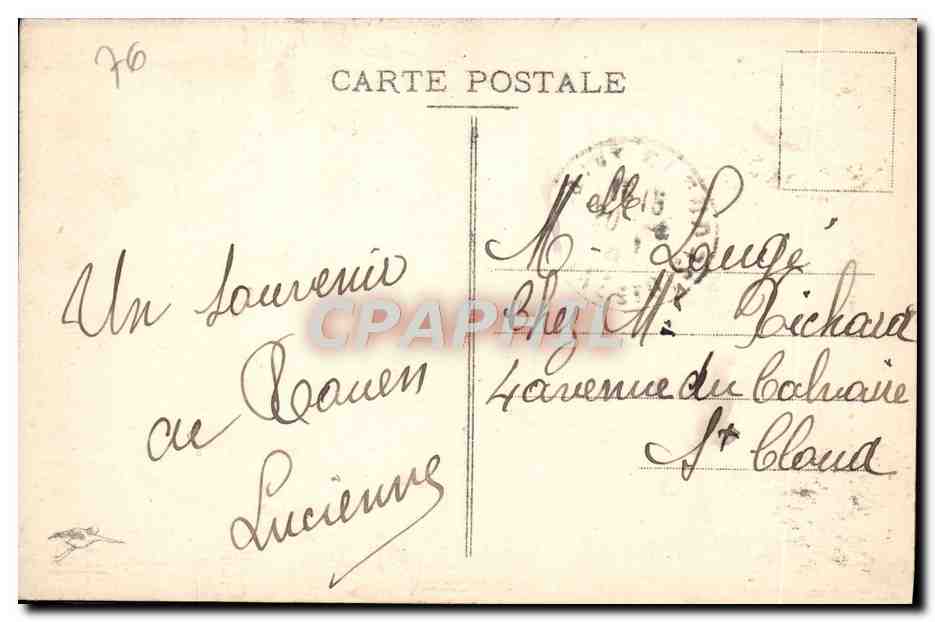 76
CARTE POSTALE
Un souvenir
de Rouen
Lucienne
Melle Laugé
Chez Mr. Richard
4 avenue du Calvaire
St Cloud
CPAPHIL